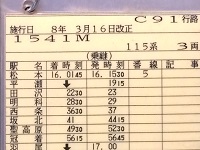 C91行路
施行日 8年 3月16日改正
1541M
115系 3両
(乗継)
駅名 着時刻 発時刻 番線 記事
松本 16.0145 16.1530 5
平瀬 ↓ 1915
田沢 2230 23
明科 2830 29
西条 3630 37
坂北 41 4415
聖高原 4930 5230
冠着 5730 5830
↓ 17.00